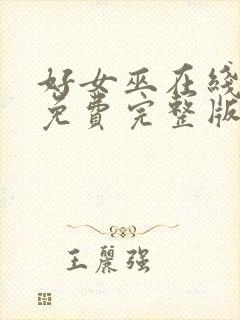 好女巫在线
免费完整版
王丽强